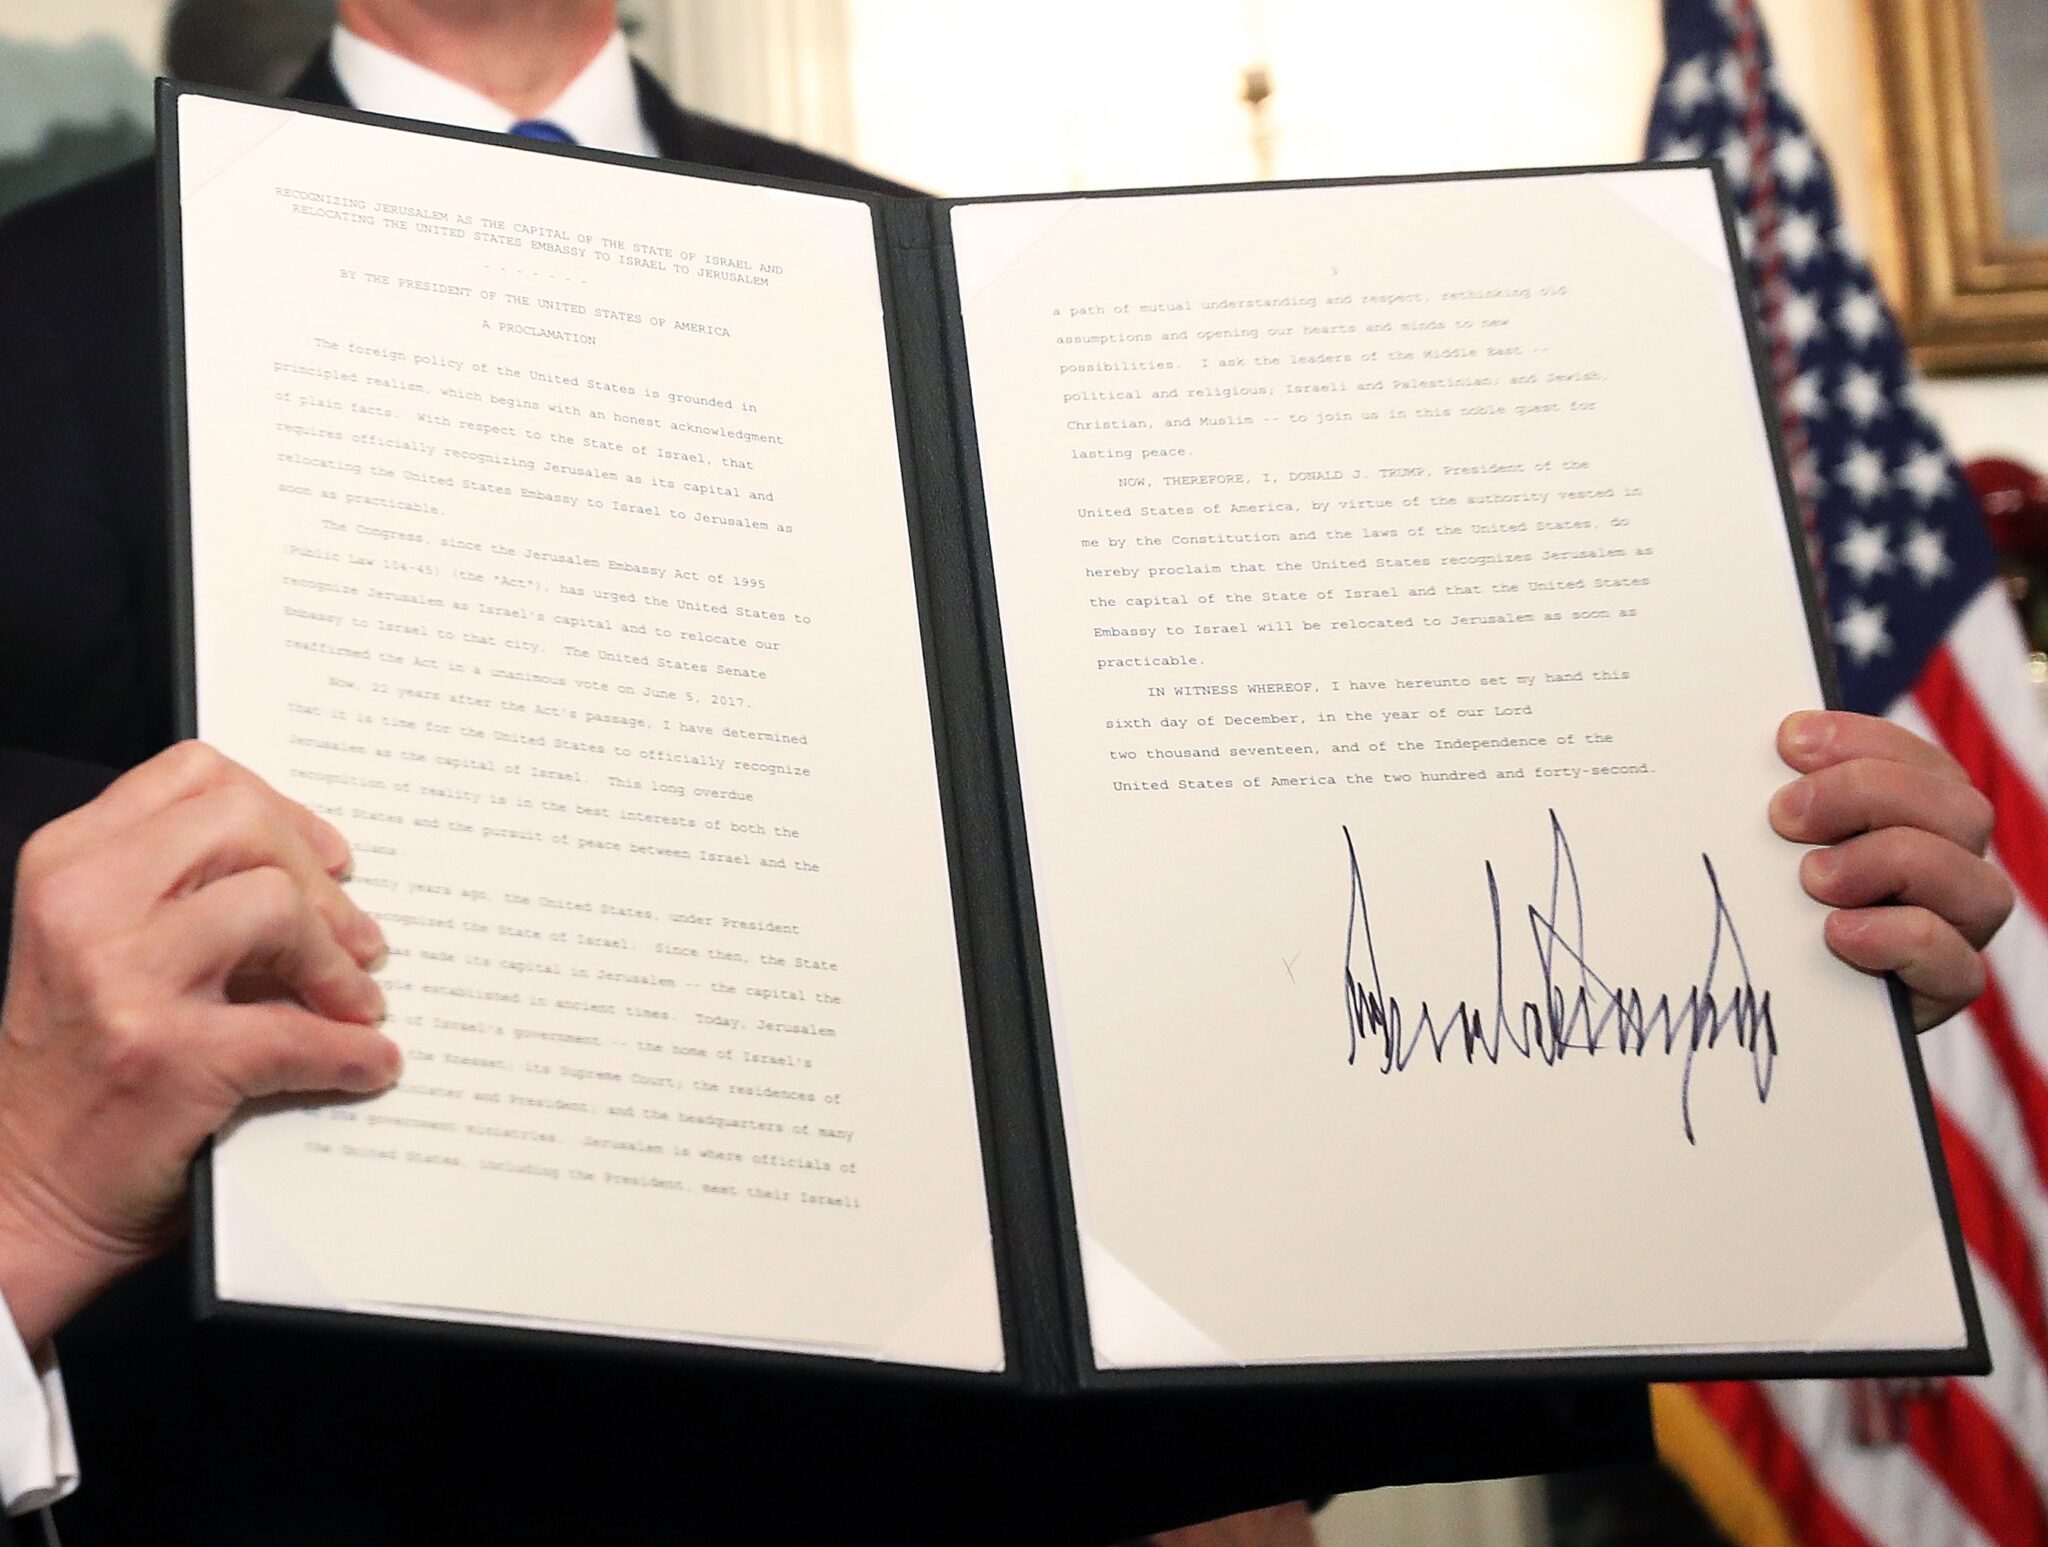 RECOGNIZING JERUSALEM AS THE CAPITAL OF THE STATE OF ISRAEL AND
RELOCATING THE UNITED STATES EMBASSY TO ISRAEL TO JERUSALEM
- - - - - - -
BY THE PRESIDENT OF THE UNITED STATES OF AMERICA
A PROCLAMATION
The foreign policy of the United States is grounded in
principled realism, which begins with an honest acknowledgment
of plain facts. With respect to the State of Israel, that
requires officially recognizing Jerusalem as its capital and
relocating the United States Embassy to Israel to Jerusalem as
soon as practicable.
The Congress, since the Jerusalem Embassy Act of 1995
(Public Law 104-45) (the "Act"), has urged the United States to
recognize Jerusalem as Israel's capital and to relocate our
Embassy to Israel to that city. The United States Senate
reaffirmed the Act in a unanimous vote on June 5, 2017.
Now, 22 years after the Act's passage, I have determined
that it is time for the United States to officially recognize
Jerusalem as the capital of Israel. This long overdue
recognition of reality is in the best interests of both the
States and the pursuit of peace between Israel and the
years ago, the United States, under President
recognized the State of Israel. Since then, the State
has made its capital in Jerusalem -- the capital the
established in ancient times. Today, Jerusalem
of Israel's government -- the home of Israel's
the Knesset; its Supreme Court; the residences of
Minister and President; and the headquarters of many
government ministries. Jerusalem is where officials of
the United States, including the President, meet their Israeli
3
a path of mutual understanding and respect, rethinking old
assumptions and opening our hearts and minds to new
possibilities. I ask the leaders of the Middle East --
political and religious; Israeli and Palestinian; and Jewish,
Christian, and Muslim -- to join us in this noble quest for
lasting peace.
NOW, THEREFORE, I, DONALD J. TRUMP, President of the
United States of America, by virtue of the authority vested in
me by the Constitution and the laws of the United States, do
hereby proclaim that the United States recognizes Jerusalem as
the capital of the State of Israel and that the United States
Embassy to Israel will be relocated to Jerusalem as soon as
practicable.
IN WITNESS WHEREOF, I have hereunto set my hand this
sixth day of December, in the year of our Lord
two thousand seventeen, and of the Independence of the
United States of America the two hundred and forty-second.